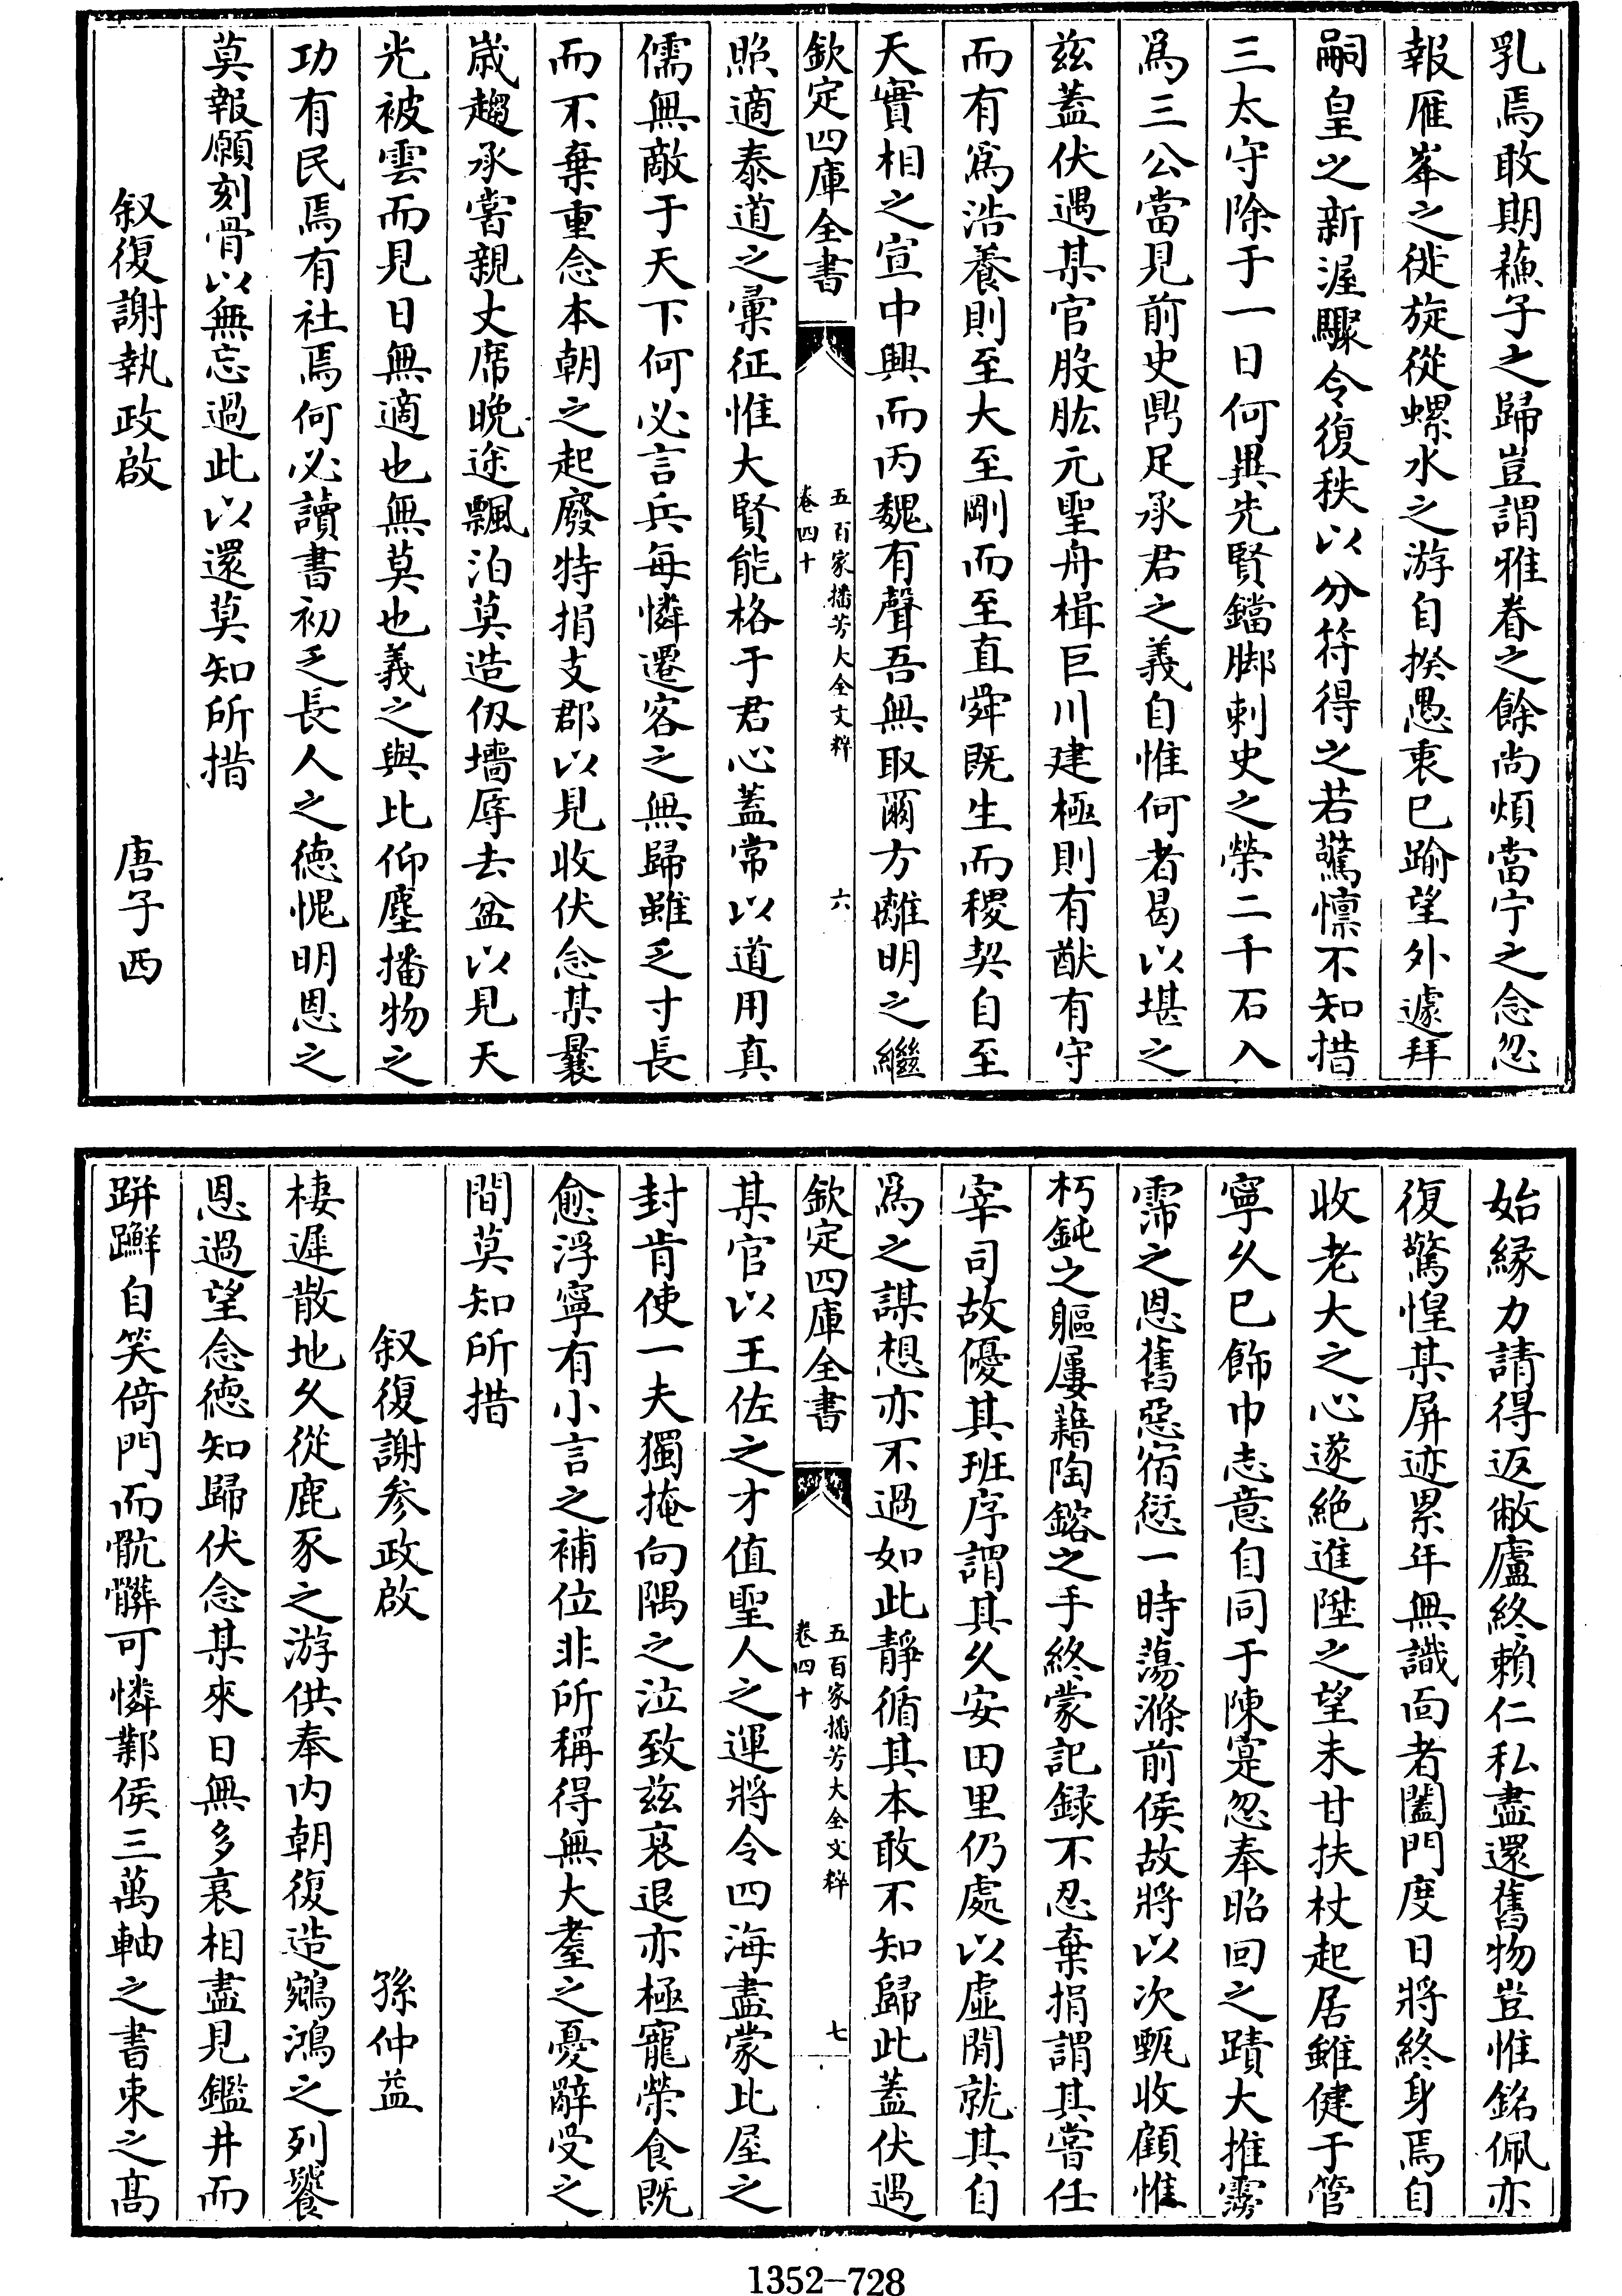 乳焉敢期蘓子之歸豈謂雅眷之餘尚煩當宁之念忽
報雁峯之徙旋從螺水之游自揆愚衷已踰望外遽拜
嗣皇之新渥驟令復秩以分符得之若驚懔不知措
三太守除于一日何異先賢鐺脚刺史之榮二千石入
爲三公當見前史鼎足承君之義自惟何者曷以堪之
兹蓋伏遇某官股肱元聖舟楫巨川建極則有猷有守
而有爲浩養則至大至剛而至直舜既生而稷契自至
天實相之宣中興而丙魏有聲吾無取爾方離明之繼
欽定四庫全書
五百家播芳大全文粹
卷四十
六
照適泰道之彙征惟大賢能格于君心蓋常以道用真
儒無敵于天下何必言兵每憐遷客之無歸雖乏寸長
而不棄重念本朝之起廢特捐支郡以見收伏念某曩
歳趨承嘗親丈席晚途飄泊莫造仭墻辱去盆以見天
光被雲而見日無適也無莫也義之與比仰塵播物之
功有民焉有社焉何必讀書初乏長人之徳愧明恩之
莫報願刻骨以無忘過此以還莫知所措
叙復謝執政啟
唐子西
始縁力請得返敝廬終賴仁私盡還舊物豈惟銘佩亦
復驚惶某屏迹累年無識面者闔門度日將終身焉自
收老大之心遂絶進陞之望未甘扶杖起居雖健于管
寧久已飾巾志意自同于陳寔忽奉昭回之蹟大推霧
霈之恩舊惡宿愆一時蕩滌前侯故將以次甄收顧惟
朽鈍之軀屢藉陶鎔之手終蒙記録不忍棄捐謂其嘗任
宰司故優其班序謂其久安田里仍處以虚閒就其自
爲之謀想亦不過如此靜循其本敢不知歸此蓋伏遇
欽定四庫全書
五百家播芳大全文粹
卷四十
七
某官以王佐之才值聖人之運將令四海盡蒙比屋之
封肯使一夫獨掩向隅之泣致兹衰退亦極寵榮食既
愈浮寧有小言之補位非所稱得無大耋之憂辭受之
間莫知所措
叙復謝参政啟
孫仲益
棲遲散地久從鹿豕之游供奉内朝復造鵷鴻之列饕
恩過望念徳知歸伏念某來日無多衰相盡見鑑井而
跰𨇤自笑倚門而骯髒可憐鄴侯三萬軸之書束之髙
1352-728